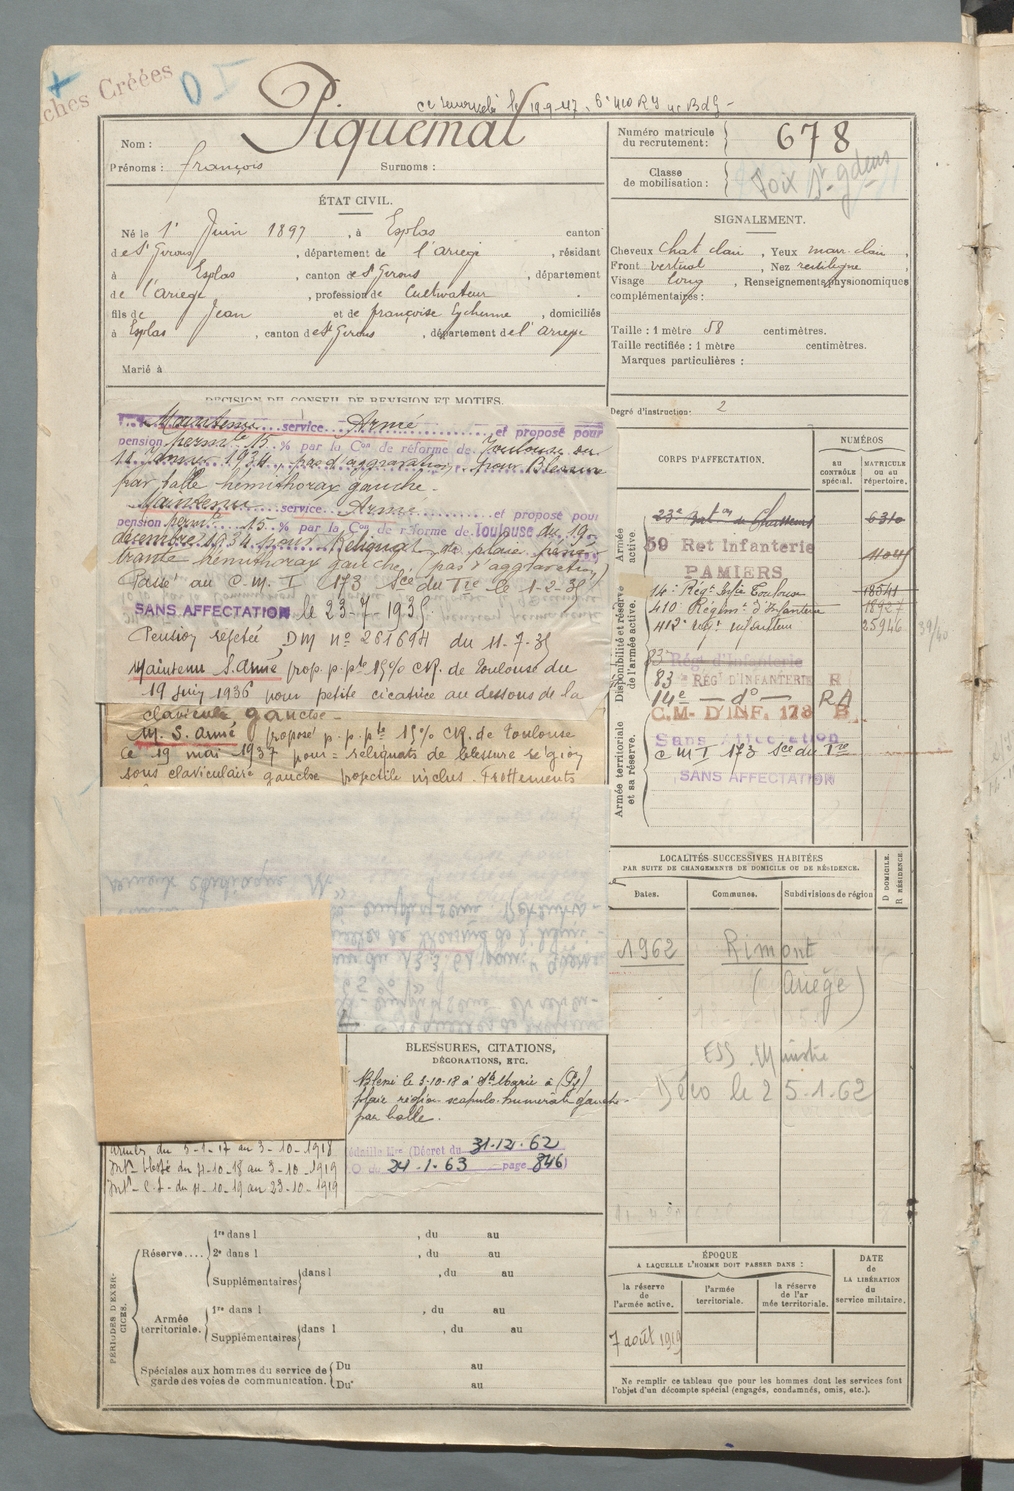 ches Créées
Piquemal
Nom :
Prénoms : françois Surnoms :
Numéro matricule du recrutement : 678
Classe de mobilisation :
ÉTAT CIVIL.
Né le 1r Juin 1897, à Esplas canton
de St Girons, département de l'ariège, résidant
à Esplas, canton de St Girons, département
de l'ariège, profession de Cultivateur
fils de Jean et de françoise, domiciliés
à Esplas, canton de St Girons, département de l'ariège
Marié à
SIGNALEMENT.
Cheveux chat clair, Yeux mar. clair,
Front vertical, Nez rectiligne,
Visage long, Renseignements physionomiques
complémentaires :
Taille : 1 mètre 58 centimètres.
Taille rectifiée : 1 mètre centimètres.
Marques particulières :
Degré d'instruction : 2
DECISION DU CONSEIL DE REVISION ET MOTIFS.
Maintenu service Armé et proposé pour
pension permte 15 % par la Con de réforme de Toulouse du
11 Janvier 1934 pas d'aggravation pour Blessure
par balle hémithorax gauche.
Maintenu service Armé et proposé pour
pension permte 15 % par la Con de réforme de Toulouse du 19
décembre 1934 pour Reliquat de plaie péné-
trante hémithorax gauche. (pas d'aggravation)
Passé au C.M.I 173 Sce du Tre le 1-2-35
SANS AFFECTATION le 23-7-1935
Pension rejetée DM no 261694 du 11-7-35
Maintenu S. Armé prop. p. pte 15% CR. de Toulouse du
19 juin 1936 pour petite cicatrice au dessous de la
clavicule gauche -
M. S. armé proposé p. p. pte 15% CR. de Toulouse
le 19 mai 1937 pour = reliquats de blessure région
sous claviculaire gauche projectile inclus. Frottements
CORPS D'AFFECTATION.
NUMÉROS
AU CONTRÔLE spécial.
MATRICULE OU AU répertoire.
Armée active.
Disponibilité et réserve de l'armée active.
Armée territorial et sa réserve.
23e Batons de Chasseurs 6310
59 Ret Infanterie
PAMIERS
14e Régt Infie Toulouse 18341
410 Régimt d'Infanterie 18927
412e régt infanterie 25946 39/40
83e Régt d'Infanterie
83e RÉGt D'INFANTERIE R
14e — do — RA
C.M. D'INF. 173 B.
Sans affectation
C M I 173 Sce du Tre
SANS AFFECTATION
LOCALITÉS SUCCESSIVES HABITÉES
PAR SUITE DE CHANGEMENTS DE DOMICILE OU DE RÉSIDENCE.
Dates. Communes. Subdivisions de région
D DOMICILE. R RÉSIDENCE.
1962 Rimont
(Ariège)
Déco le 25.1.62
BLESSURES, CITATIONS,
DÉCORATIONS, ETC.
Blessé le 3-10-18 à Ste Marie à (Py)
plaie région scapulo-humérale gauche
par balle.
édaille Mre (Décret du 31.12.62
O du 24.1.63 page 846)
du 5-1-17 au 3-10-1918
Intr blessé du 4-10-18 au 3-10-1919
Intr C.S. du 4-10-19 au 23-10-1919
PÉRIODES D'EXERCICES.
Réserve....
1re dans l , du au
2e dans l , du au
Supplémentaires dans l , du au
Armée territoriale.
1re dans l , du au
Supplémentaires dans l , du au
Spéciales aux hommes du service de garde des voies de communication.
Du au
Du au
ÉPOQUE
A LAQUELLE L'HOMME DOIT PASSER DANS :
la réserve de l'armée active.
l'armée territoriale.
la réserve de l'ar mée territoriale.
DATE de LA LIBÉRATION du service militaire.
7 août 1919
Ne remplir ce tableau que pour les hommes dont les services font
l'objet d'un décompte spécial (engagés, condamnés, omis, etc.).